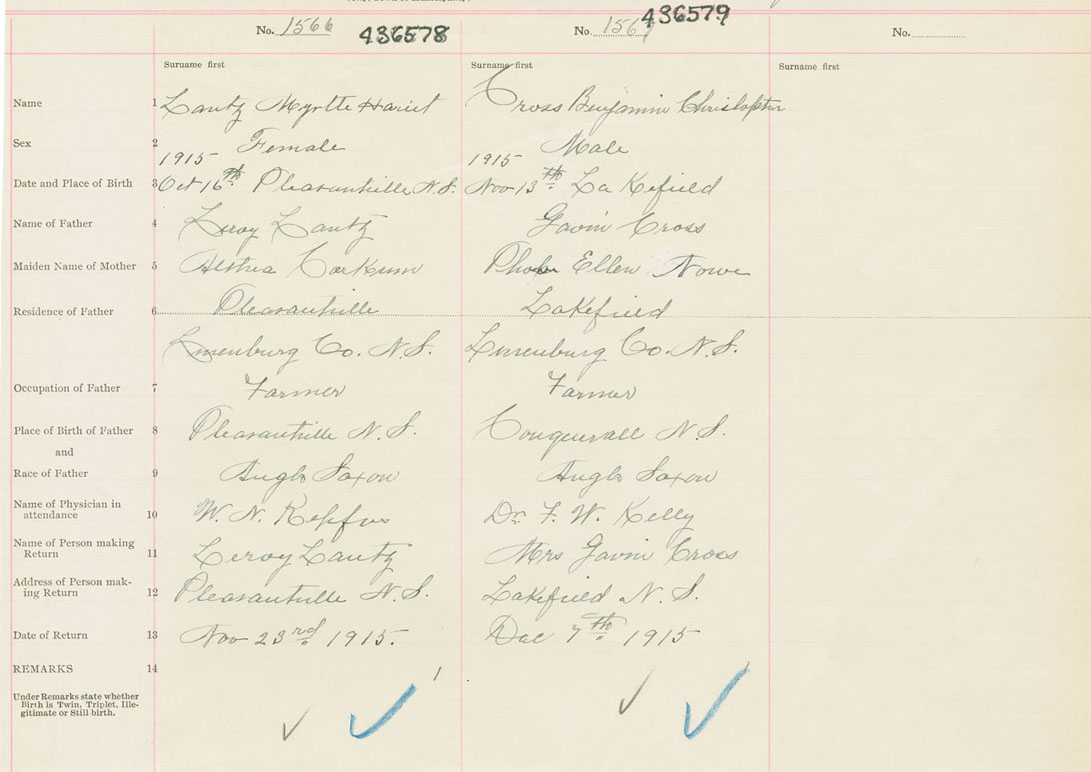 No. 1566 436578 No. 1567 436579 No.
Surname first Surname first Surname first
Name 1 Lantz Myrtle Hariet Cross Benjamin Christopher
Sex 2 Female Male
1915 1915
Date and Place of Birth 3 Oct 16th Pleasantville N.S. Nov 13th La Kefield
Name of Father 4 Leroy Lantz Gavin Cross
Maiden Name of Mother 5 Althea Corkum Phobe Ellen Nowe
Residence of Father 6 Pleasantville Lakefield
Lunenburg Co. N.S. Lunenburg Co. N.S.
Occupation of Father 7 Farmer Farmer
Place of Birth of Father 8 Pleasantville N.S. Conquerall N.S.
and
Race of Father 9 Anglo Saxon Anglo Saxon
Name of Physician in
attendance 10 W. N. Rehfus Dr. F. W. Kelly
Name of Person making
Return 11 Leroy Lantz Mrs Gavin Cross
Address of Person mak-
ing Return 12 Pleasantville N.S. Lakefield N.S.
Date of Return 13 Nov 23rd 1915. Dec 7th 1915
REMARKS 14
Under Remarks state whether
Birth is Twin, Triplet, Ille-
gitimate or Still birth.